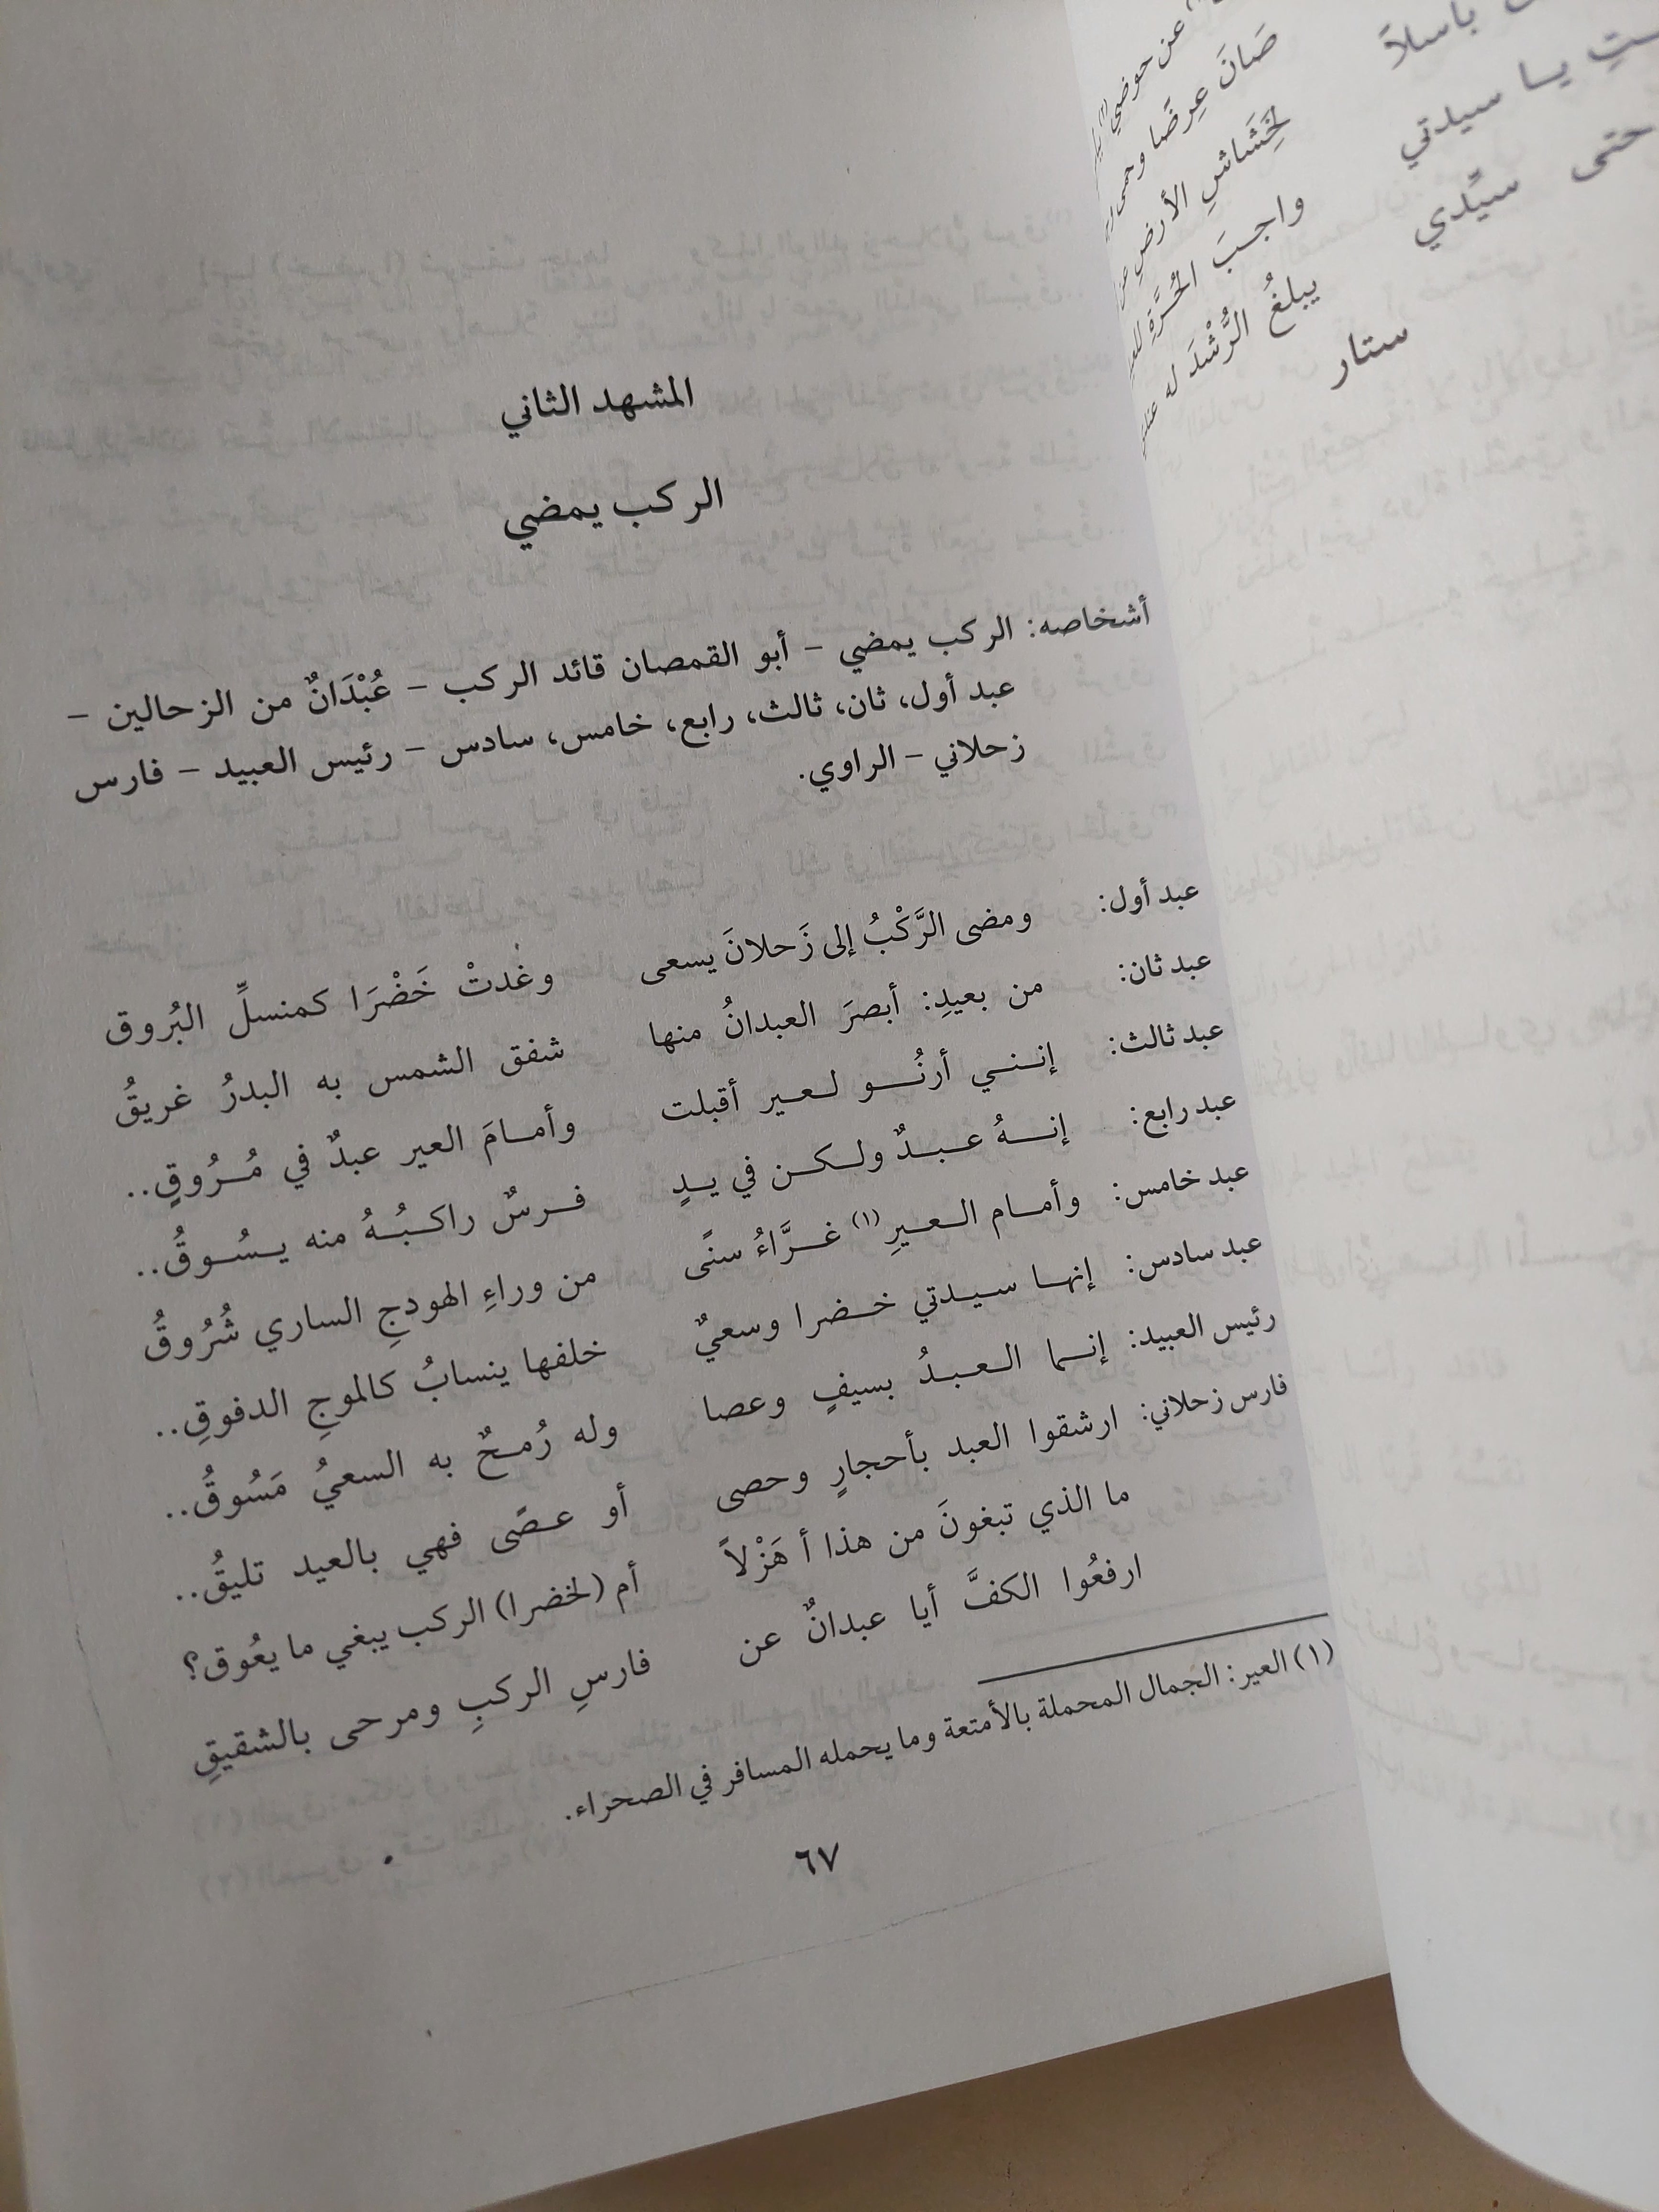 باسلاً
يا سيدتي
حتى سيِّدي
عن حوضي
صَانَ عِرضًا وحمى
لِخَشَاشِ الأرضِ
واجبَ الحُرَّةِ
يبلغُ الرُّشْدَ له
ستار
المشهد الثاني
الركب يمضي
أشخاصه: الركب يمضي – أبو القمصان قائد الركب – عُبْدَانٌ من الزحالين –
عبد أول، ثان، ثالث، رابع، خامس، سادس – رئيس العبيد – فارس
زحلاني – الراوي.
عبد أول: ومضى الرَّكْبُ إلى زَحلانَ يسعى وغدتْ خَضْرَا كمنسلِّ البُروق
عبد ثان: من بعيدِ: أبصرَ العبدانُ منها شفق الشمس به البدرُ غريقُ
عبد ثالث: إنني أرنُو لعير أقبلت وأمامَ العير عبدٌ في مُرُوقٍ..
عبد رابع: إنهُ عبدٌ ولكن في يدٍ فرسٌ راكبُهُ منه يسُوقُ..
عبد خامس: وأمام العيرِ (١) غرَّاءُ سنًى من وراءِ الهودجِ الساري شُرُوقُ
عبد سادس: إنها سيدتي خضرا وسعيٌ خلفها ينسابُ كالموجِ الدفوقِ..
رئيس العبيد: إنما العبدُ بسيفٍ وعصا وله رُمحٌ به السعيُ مَسُوقُ..
فارس زحلاني: ارشقوا العبد بأحجارٍ وحصى أو عصًى فهي بالعيد تليقُ..
ما الذي تبغونَ من هذا أ هَزْلاً أم (لخضرا) الركب يبغي ما يعُوق؟
ارفعُوا الكفَّ أيا عبدانٌ عن فارسِ الركبِ ومرحى بالشقيقِ
(١) العير: الجمال المحملة بالأمتعة وما يحمله المسافر في الصحراء.
٦٧